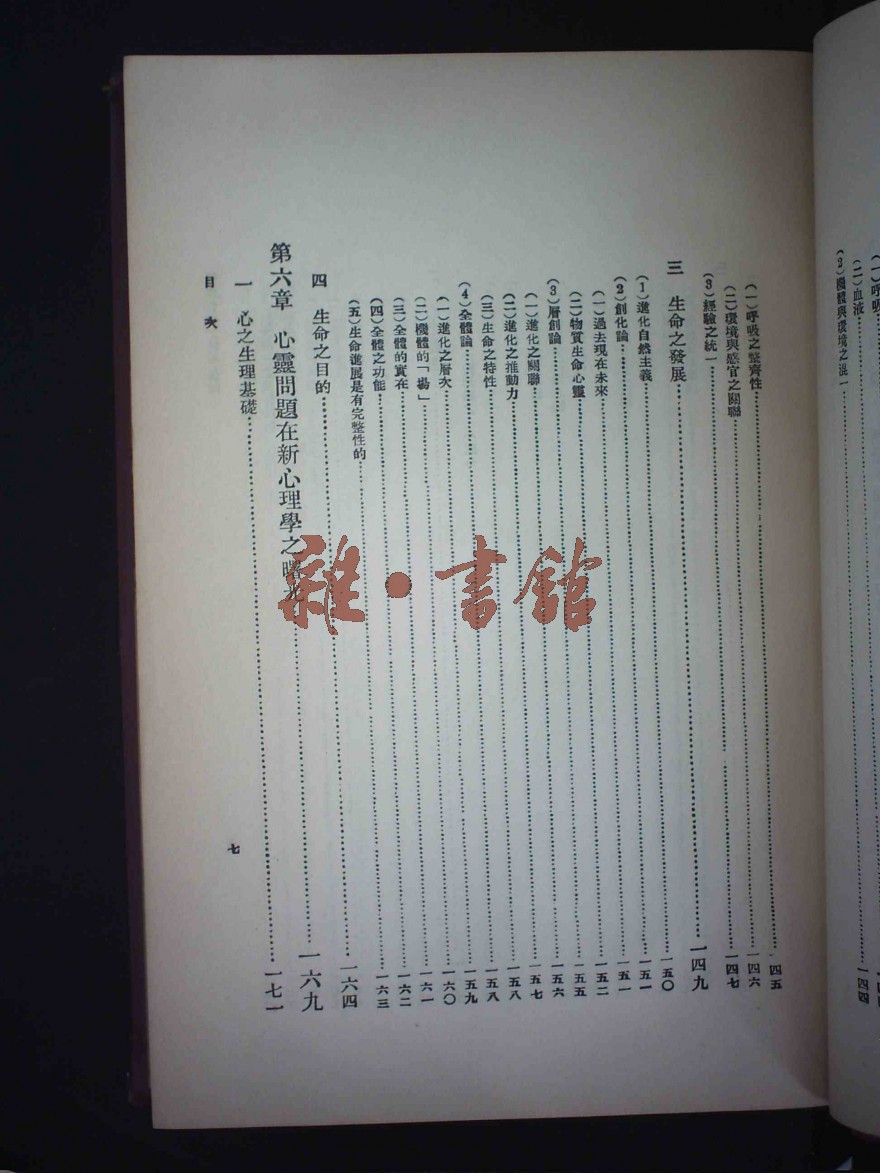 (一)呼吸
(二)血液
(2)機體與環境之混一……一四四
(一)呼吸之整齊性……一四五
(二)環境與感官之關聯……一四六
(3)經驗之統一……一四七
三 生命之發展……一四九
(1)進化自然主義……一五〇
(2)創化論……一五一
(一)過去現在未來……一五一
(二)物質生命心靈……一五二
(3)層創論……一五五
(一)進化之關聯……一五六
(二)進化之推動力……一五七
(三)生命之特性……一五八
(4)全體論……一五八
(一)進化之層次……一五九
(二)機體的「場」……一六〇
(三)全體的實在……一六一
(四)全體之功能……一六二
(五)生命進展是有完整性的……一六三
四 生命之目的……一六四
第六章 心靈問題在新心理學之曙光……一六九
一 心之生理基礎……一七一
目次
七
雜·書館